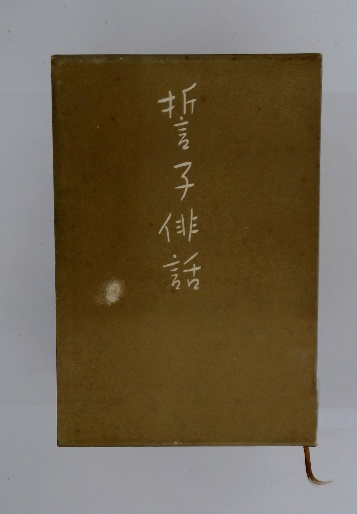 誓子俳話